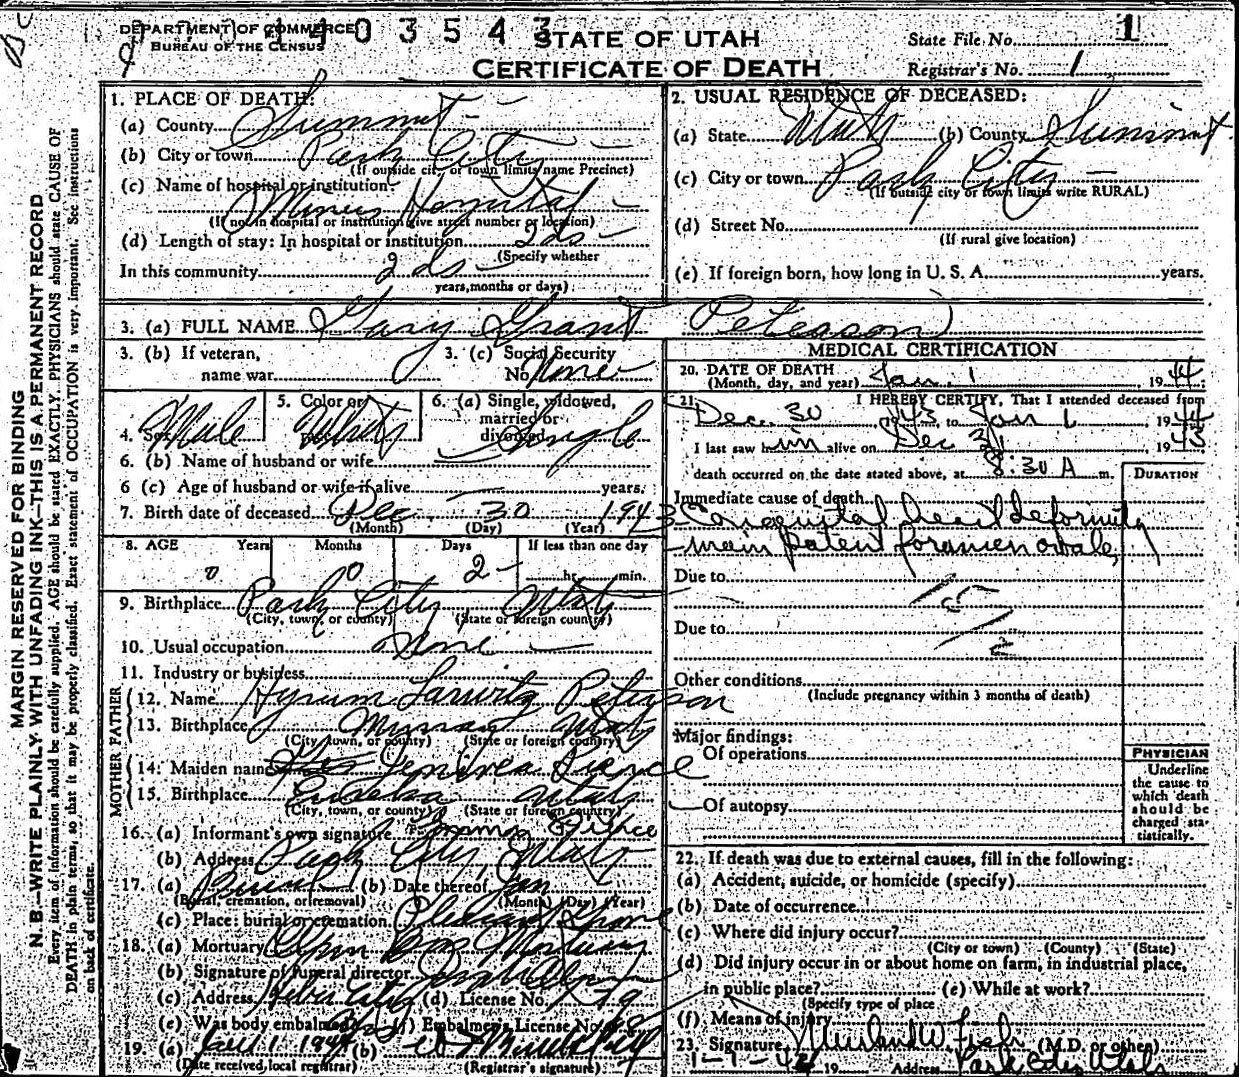 DEPARTMENT OF COMMERCE
BUREAU OF THE CENSUS
4403543
STATE OF UTAH
CERTIFICATE OF DEATH
State File No. 1
Registrar's No. 1
MARGIN RESERVED FOR BINDING
N. B.—WRITE PLAINLY WITH UNFADING INK—THIS IS A PERMANENT RECORD
Every item of information should be carefully supplied. AGE should be stated EXACTLY. PHYSICIANS should state CAUSE OF
DEATH in plain terms, so that it may be properly classified. Exact statement of OCCUPATION is very important. See instructions
on back of certificate.
1. PLACE OF DEATH:
(a) County Summit
(b) City or town Park City
(If outside city or town limits name Precinct)
(c) Name of hospital or institution:
Miners Hospital
(If not in hospital or institution give street number or location)
(d) Length of stay: In hospital or institution 2 ds
(Specify whether
In this community 2 ds
years, months or days)
2. USUAL RESIDENCE OF DECEASED:
(a) State Utah (b) County Summit
(c) City or town Park City
(If outside city or town limits write RURAL)
(d) Street No.
(If rural give location)
(e) If foreign born, how long in U. S. A. years.
3. (a) FULL NAME Gary Grant Peterson
3. (b) If veteran,
name war
3. (c) Social Security
No. None
4. Sex Male
5. Color or
race White
6. (a) Single, widowed,
married or
divorced Single
6. (b) Name of husband or wife
6 (c) Age of husband or wife if alive years.
7. Birth date of deceased Dec. 30 1943
(Month) (Day) (Year)
8. AGE Years Months Days If less than one day
0 0 2 hr. min.
9. Birthplace Park City Utah
(City, town, or county) (State or foreign country)
10. Usual occupation None
11. Industry or business
FATHER
12. Name Hyrum Peterson
13. Birthplace Murray Utah
(City, town, or county) (State or foreign country)
MOTHER
14. Maiden name Pearce
15. Birthplace Eureka Utah
(City, town, or county) (State or foreign country)
16. (a) Informant's own signature
(b) Address Park City, Utah
17. (a) Burial (b) Date thereof Jan
(Burial, cremation, or removal) (Month) (Day) (Year)
(c) Place: burial or cremation Pleasant
18. (a) Mortuary Olpin Bros Mortuary
(b) Signature of funeral director
(c) Address Heber City (d) License No. 79
(e) Was body embalmed (f) Embalmers License No.
19. (a) Jan 1 1944 (b)
(Date received, local registrar) (Registrar's signature)
MEDICAL CERTIFICATION
20. DATE OF DEATH
(Month, day, and year) Jan. 1, 1944
21. I HEREBY CERTIFY, That I attended deceased from
Dec. 30 1943, to Jan 1, 1944
I last saw him alive on Dec 31, 1943
death occurred on the date stated above, at 8:30 A m.
DURATION
Immediate cause of death
Congenital heart deformity
main patent foramen ovale,
Due to
Due to
Other conditions
(Include pregnancy within 3 months of death)
Major findings:
Of operations
Of autopsy
PHYSICIAN
Underline
the cause to
which death
should be
charged sta-
tistically.
22. If death was due to external causes, fill in the following:
(a) Accident, suicide, or homicide (specify)
(b) Date of occurrence
(c) Where did injury occur?
(City or town) (County) (State)
(d) Did injury occur in or about home on farm, in industrial place,
in public place? (e) While at work?
(Specify type of place
(f) Means of injury
23. Signature (M.D. or other)
19 Address Park City, Utah